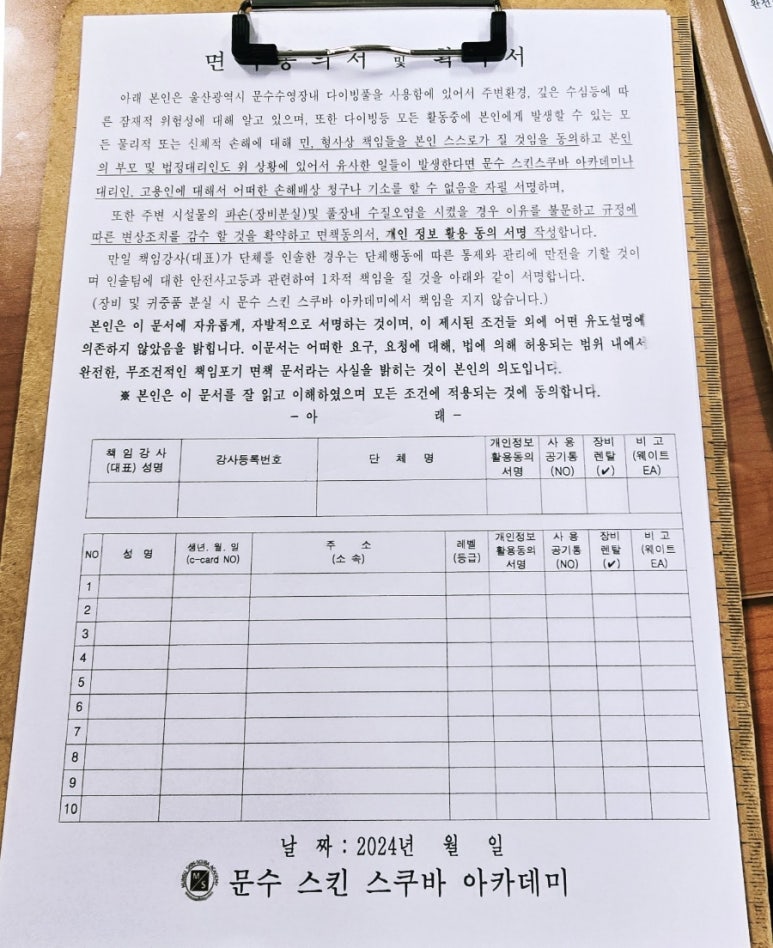 면 서 및 서
아래 본인은 울산광역시 문수수영장내 다이빙풀을 사용함에 있어서 주변환경, 깊은 수심등에 따
른 잠재적 위험성에 대해 알고 있으며, 또한 다이빙등 모든 활동중에 본인에게 발생할 수 있는 모
든 물리적 또는 신체적 손해에 대해 민, 형사상 책임들을 본인 스스로가 질 것임을 동의하고 본인
의 부모 및 법정대리인도 위 상황에 있어서 유사한 일들이 발생한다면 문수 스킨스쿠바 아카데미나
대리인, 고용인에 대해서 어떠한 손해배상 청구나 기소를 할 수 없음을 자필 서명하며,
또한 주변 시설물의 파손(장비분실)및 풀장내 수질오염을 시켰을 경우 이유를 불문하고 규정에
따른 변상조치를 감수 할 것을 확약하고 면책동의서, 개인 정보 활용 동의 서명 작성합니다.
만일 책임강사(대표)가 단체를 인솔한 경우는 단체행동에 따른 통제와 관리에 만전을 기할 것이
며 인솔팀에 대한 안전사고등과 관련하여 1차적 책임을 질 것을 아래와 같이 서명합니다.
(장비 및 귀중품 분실 시 문수 스킨 스쿠바 아카데미에서 책임을 지지 않습니다.)
본인은 이 문서에 자유롭게, 자발적으로 서명하는 것이며, 이 제시된 조건들 외에 어떤 유도설명에
의존하지 않았음을 밝힙니다. 이문서는 어떠한 요구, 요청에 대해, 법에 의해 허용되는 범위 내에서
완전한, 무조건적인 책임포기 면책 문서라는 사실을 밝히는 것이 본인의 의도입니다.
※ 본인은 이 문서를 잘 읽고 이해하였으며 모든 조건에 적용되는 것에 동의합니다.
- 아 래 -
책 임 강 사 (대표) 성명 강사등록번호 단 체 명 개인정보 활용동의 서명 사 용 공기통 (NO) 장비 렌탈 (✔) 비 고 (웨이트 EA)
NO 성 명 생년. 월. 일 (c-card NO) 주 소 (소 속) 레벨 (등급) 개인정보 활용동의 서명 사 용 공기통 (NO) 장비 렌탈 (✔) 비 고 (웨이트 EA)
1
2
3
4
5
6
7
8
9
10
날 짜 : 2024년 월 일
M/S
문수 스킨 스쿠바 아카데미